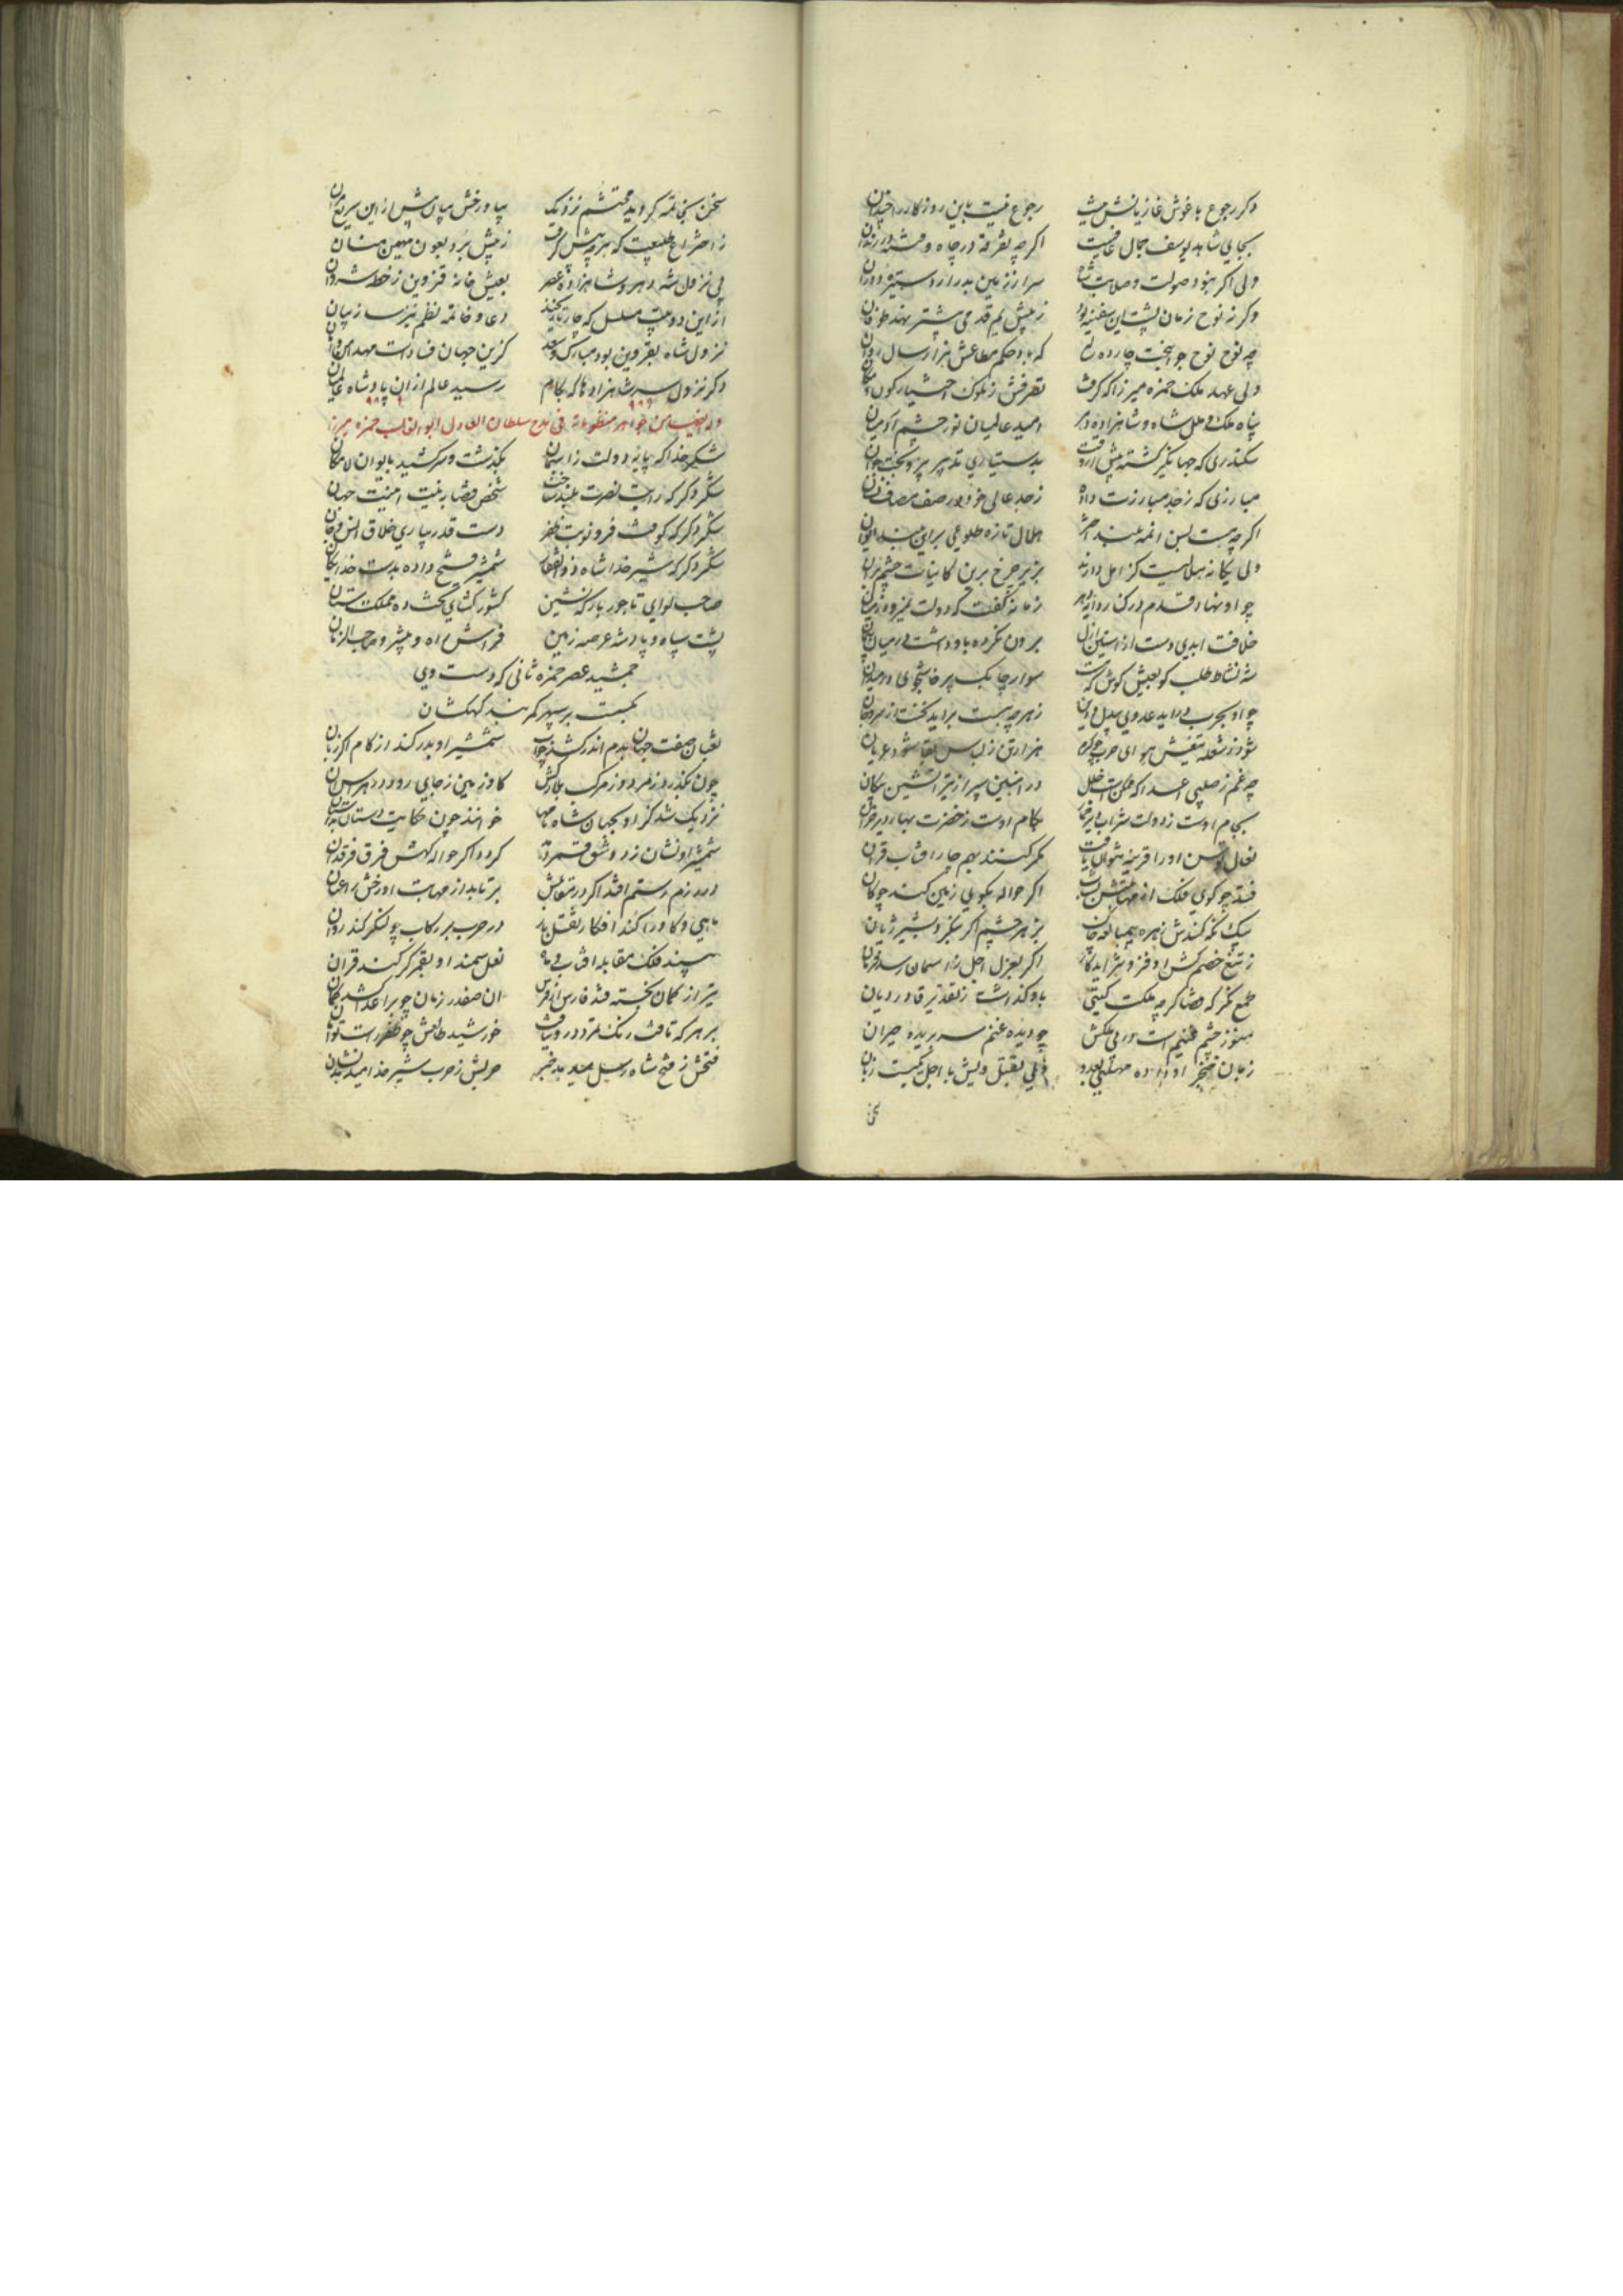 وکر رجوع باغوش غازیانش نیست رجوع نیست باین روزکار
بجایی شاهد یوسف جمال عافیت اکر چه تفرقه در چاه و فتنه در زندان
ولی اکر نبود صولت و صلابت شاه سر از زمین بدر ارد ستیزه دوران
وکر ز نوح زمان پشت این سفینه بود ز پیش یم قدمی پیشتر نهد طوفان
چه نوح نوح جوانبخت چارده که باد حکم مطاعش هزار سال روان
ولی عهد ملک حمزه میرزا که کرفت تصرفش ز ملوک اختیار کون و مکان
پناه ملک و ملل شاه و شاهزاده دهر امید عالمیان نور چشم ادمیان
سکندری که جهانکیر کشته پیش از وقت بدستیاری تدبیر پیر و بخت جوان
مبارزی که ز جد مبارزت داده ز جد عالی خود در صف مصاف نشان
اکر چه هست بسن انمه بلند اختر هلال تازه طلوعی براین بلند ایوان
ولی یکانه هلالیست کز اهل دارند بزیر چرخ برین کاینات چشم بران
چو او نهاد قدم در کنار دایه دهر زمانه کفت که دولت
خلافت ابدی دست از استین ازل برون نکرده باو داشت در میان پیمان
شه نشاط طلب کو بعیش کوش که هست سوار چابک پرخاشجوی در میدان
چو او بحرب دراید عدوی ز هر چه هست براید نخست از سر و جان
شود ز شعله تیغش هوای حرب چو کرم هزار تن ز لباس بقا شود عریان
چه غم ز صلبی اعدا که ممکنست خلل در اهنین سپر از تیر اتشین پیکان
بجام اوست ز دولت شراب دیر خمار بکام اوست ز خضرت بهار دیر خزان
نعال توسن او را قرینه نتوان یافت مکر کنند بهم چار افتاب قران
فتد چو کوی فلک از اکر حواله بکوی زمین کند چوکان
بیک نکه کندش زهره بزهر چشم اکر بنکرد بشیر ژیان
ز تیغ خصم کش او فزونتر اید کار اکر بعزل اجل ز اسمان رسد فرمان
طمع نکر که قضا کرچه ملکت کیتی باو کذاشت ز تقدیر قادر دیان
هنوز چشم غنیم است در پی ملکش چو دیده غنم سر بریده حیران
زبان خنجر او داده بعدو ولی بقتل ویش با اجل یکیست زبان
سخن بخاتمه کروید محتشم نزدیک بیا و رخش بیان پیش از این سریع مران
ز اختراع طبیعت که هر چه پیش کرفت ز پیش برد بعون مهیمن منان
پی نزول شه دهر و شاهزاده عصر بعیش خانه قزوین ز خطه شروان
از این دو بیت مسلسل که چار تاریخند دعا و خاتمه نظم نیز ساز بیان
نزول شاه بقزوین بود مبارک و سعد کزین جهان فتاد است مهد امن و امان
دکر نزول سر شاهزادها که بکام رسید عالم از ان پادشاه عالمیان
۹۸۹
وله ایضا من جواهر منظوماته فی مدح سلطان العادل ابو الغالب حمزه میرزا
شکر خدا که پایه دولت ز اسمان بکذشت و سر کشید بایوان لامکان
شکر دکر که رایت نصرت بلند ساخت شخص قضا به نیت امنیت جهان
شکر دکر که کوفت فرو نوبت ظفر دست قدر بیاری خلاق انس و جان
شکر دکر که شیر خدا شاه ذوالفقار شمشیر فتح داده بدست خدایکان
صاحب لوای تاجور بارکه نشین کشور کشای تخت ده مملکت ستان
پشت سپاه و پادشه عرصه زمین فراش راه و پیشرو صاحب الزمان
جمشید عصر حمزه ثانی که دست وی
بکسست بر سپهر کمربند کهکشان
ثعبان صفت جهان بدم اندر کشد چو اب شمشیر او بدر کند از کام اکر زبان
چون بکذرد ز مرد و ز مرکب کاو زمین ز جای رود در هراس ان
نزدیک شد کز او بجهان شاه نامها خوانند چون حکایت دستان باستان
شمشیر او نشان ز دو شق قمر دهد کردد اکر حواله کهش فرق فرقدان
در رزم رستم افتد اکر در مقابلش برتابد از مهابت او رخش را عنان
ماهی و کاو را کند افکار ثقل بار در حرب بر رکاب چو لنکر کند روان
بیند فلک مقابله افتاب و ماه نعل سمند او بقمر کر کند قران
تیر از کمان بجسته فتد فارس از فرس ان صفدر زمان چو بر اعدا کشد کمان
بر هر که تافت رنک تمرد در او نیافت خورشید طالعش چو ظفر راست توامان
فتحش ز فتح شاه رسل میدهد خبر حربش ز حرب شیر خدا میدهد نشان